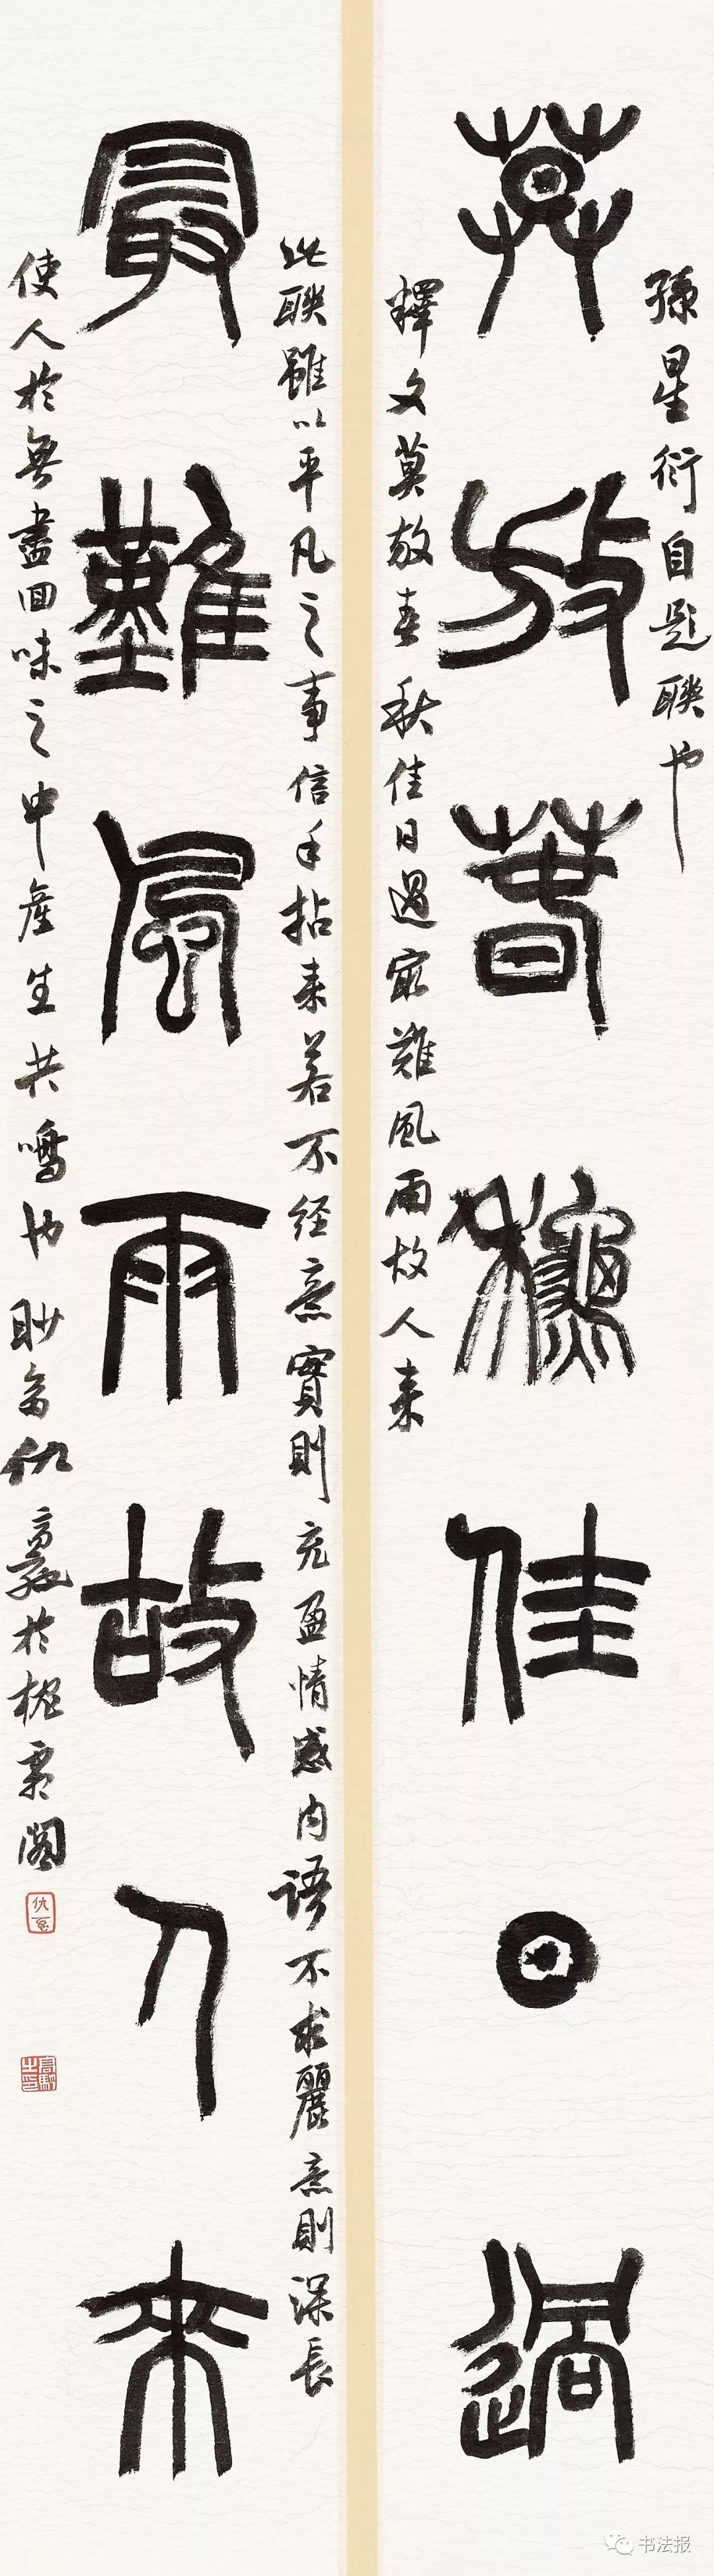 孫星衍自題聯也
莫放春秋佳日過
釋文莫放春秋佳日過最難風雨故人来
此聯雖以平凡之事信手拈来若不经意實則充盈情感内語不求麗意則深長
最難風雨故人来
使人於無盡回味之中產生共鳴也仇高馳於閣
书法报